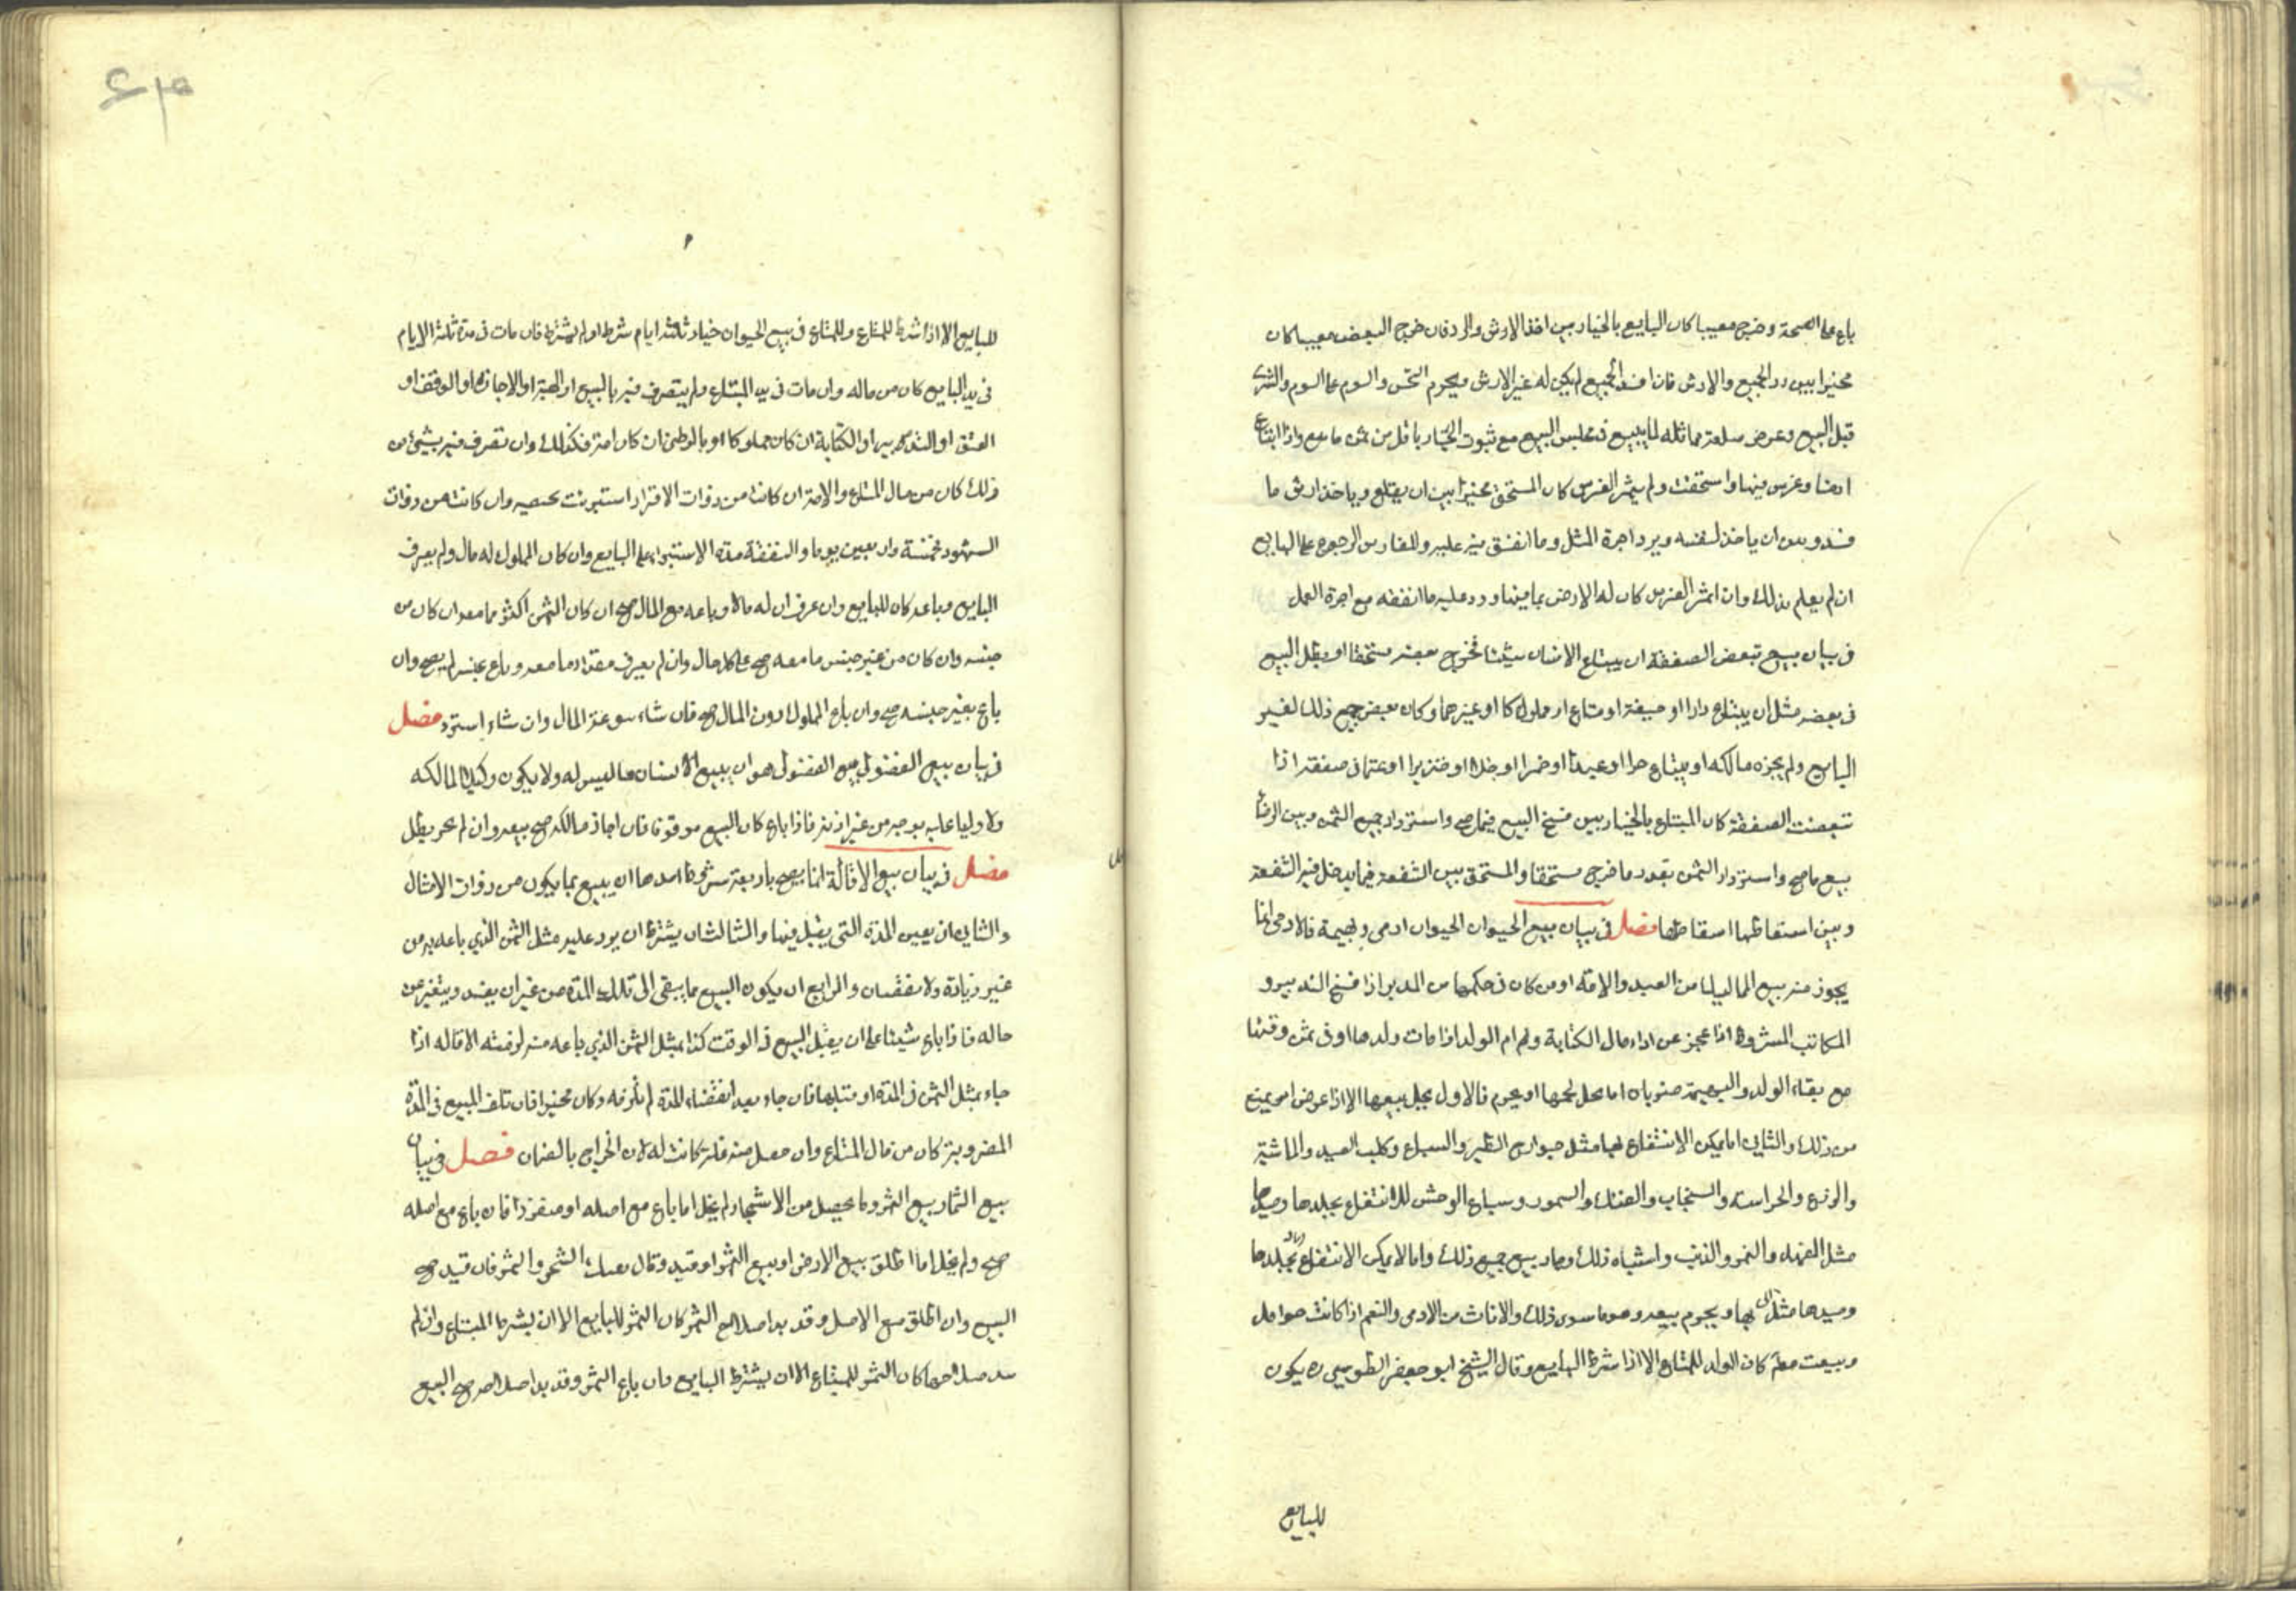 باع على الصحة وخرج معيبا كان البايع بالخيار بين اخذ الارش والرد فان خرج البعض معيبا كان
مخيرا بين رد الجميع والارش فان افسد الجميع لم يكن له غير الارش ويحرم النجش والسوم على السوم والشرى
قبل البيع وعرض سلعة مماثله لما يبيع فى مجلس البيع مع ثبوت الخيار باقل من ثمن ما بيع واذا ابتاع
ارضا وغرس فيها واستحقت ولم يثمر الغرس كان المستحق مخيرا بين ان يقلع وياخذ ارش ما
فسد وبين ان ياخذ لنفسه ويرد اجرة المثل وما انفق فيه عليه وللغارس الرجوع على البايع
ان لم يعلم بذلك وان اثمر الغرس كان له الارض بما فيها ورد عليه ما انفقه مع اجرة العمل
فى بيان بيع تبعض الصفقة ان يبتاع الانسان شيئا فخرج بعضه مستحقا او بطل البيع
فى بعضه مثل ان يبتاع دارا او ضيعة او متاع او مملوكا او غيرهما وكان بعض جميع ذلك لغير
البايع ولم يجزه مالكه او يبتاع حرا او عبدا او خمرا او خلا او خنزيرا او غنما فى صفقة اذا
تبعضت الصفقة كان المبتاع بالخيار بين فسخ البيع فيما صح واسترداد جميع الثمن وبين الرضا
بيع ما صح واسترداد الثمن بقدر ما خرج مستحقا والمستحق بين الشفعة فيما يدخل فيه الشفعة
وبين اسقاطها اسقاطها فصل فى بيان بيع الحيوان الحيوان ادمى وبهيمة فالادمى انما
يجوز منه بيع المماليك من العبيد والامة او من كان فى حكمها من المدبر اذا فسخ التدبير و
المكاتب المشروط اذا عجز عن اداء مال الكتابة وام الولد اذا مات ولدها او فى ثمن رقبتها
مع بقاء الولد والبهيمة ضربان اما يحل لحمها او يحرم فالاول يحل بيعها الا اذا عرض امر يمنع
من ذلك والثانى اما يمكن الانتفاع بها مثل جوارح الطير والسباع وكلب الصيد والماشية
والزرع والحراسة والسنجاب والفنك والسمور وسباع الوحش للانتفاع بجلدها وصيدها
مثل الفهد والنمر والذئب واشباه ذلك وجاز بيع جميع ذلك واما لا يمكن الانتفاع بجلدها
وصيدها مثل بها ويحرم بيعه وهو ما سوى ذلك والاناث من الادمى والنعم اذا كانت حوامل
وبيعت كان الولد للمبتاع الا اذا شرط البايع وقال الشيخ ابو جعفر الطوسى ره يكون
للبايع
للبايع الا اذا شرط للمبتاع وللمبتاع فى بيع الحيوان خيار ثلثة ايام شرط او لم يشترط فان مات فى مدة ثلثة الايام
فى يد البايع كان من ماله وان مات فى يد المبتاع ولم يتصرف فيه بالبيع او الهبة او الاجازة او الوقف او
العتق او التدبير او الكتابة ان كان مملوكا او بالوطئ ان كان امة فكذلك وان تصرف فيه بشئ من
ذلك كان من مال المبتاع والامة ان كانت من ذوات الاقراء استبرئت بحيضة وان كانت من ذوات
الشهور فخمسة واربعين يوما والنفقة مدة الاستبراء على البايع وان كان المملوك له مال ولم يعرف
البايع وباعه كان للبايع وان عرف ان له مالا وباعه مع المال صح ان كان الثمن اكثر مما معه ان كان من
جنسه وان كان من غير جنس ما معه صح على كل حال وان لم يعرف مقدار ما معه وباع بجنسه لم يصح وان
باع بغير جنسه صح وان باع المملوك دون المال صح فان شاء سوغه المال وان شاء استرد فصل
فى بيان بيع الفضولى بيع الفضولى هو ان يبيع الانسان ما ليس له ولا يكون وكيلا لمالكه
ولا وليا عليه بوجه من غير اذنه فاذا باع كان البيع موقوفا فان اجاز مالكه صح بيعه وان لم يجز بطل
فصل فى بيان بيع الاقالة انما يصح باربعة شروط احدها ان يبيع بما يكون من ذوات الامثال
والثانى ان يعين المدة التى يقيل فيها والثالث ان يشترط ان يرد عليه مثل الثمن الذى باعه به من
غير زيادة ولا نقصان والرابع ان يكون البيع مما يبقى الى تلك المدة من غير ان يفسد ويتغير عن
حاله فاذا باع شيئا على ان يقيل البيع فى الوقت كذا بمثل الثمن الذى باعه منه لزمته الاقاله اذا
جاء بمثل الثمن فى المدة او قبلها فان جاء بعد انقضاء المدة لم تلزمه وكان مخيرا فان تلف المبيع فى المدة
المضروبة كان من مال المبتاع وان حصل منه غلة كانت له لان الخراج بالضمان فصل فى بيان
بيع الثمار بيع الثمر وما يحصل من الاشجار لم يخل اما باع مع اصله او منفردا فان باع مع اصله
صح ولم يخل اما اطلق بيع الارض او بيع الثمر او قيد وقال بعتك الشجر والثمر فان قيد صح
البيع وان اطلق بيع الاصل وقد بدا صلاح الثمر كان الثمر للبايع الا ان يشرط المبتاع وان لم
يبد صلاحها كان الثمر للمبتاع الا ان يشترط البايع وان باع الثمر وقد بدا صلاحه صح البيع